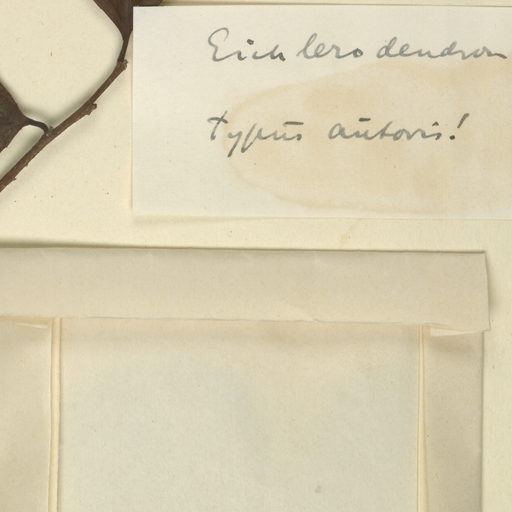 Eichlerodendron
typus autoris!